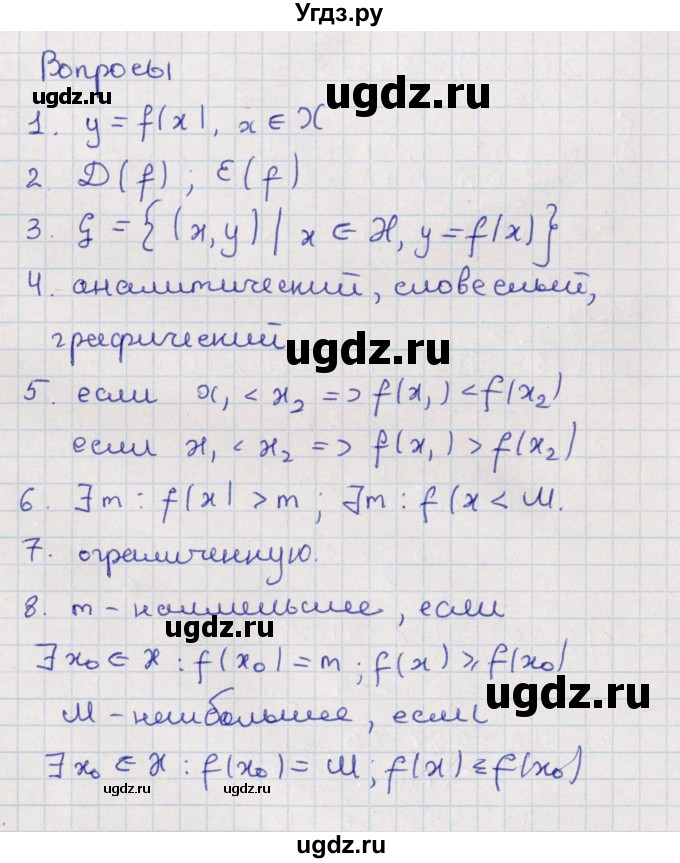 Угдз.ру
Вопросы
ugdz.ru
ugdz.ru
1. y = f(x), x ∈ X
2. D(f); E(f)
3. G = {(x, y) | x ∈ X, y = f(x)}
4. аналитический, словесный,
графический
ugdz.ru
5. если x₁ < x₂ => f(x₁) < f(x₂)
если x₁ < x₂ => f(x₁) > f(x₂)
6. ∃m : f(x) > m; ∃m : f(x < M.
7. ограниченную.
8. m - наименьшее, если
ugdz.ru
∃x₀ ∈ X : f(x₀) = m; f(x) ⩾ f(x₀)
ugdz.ru
M - наибольшее, если
∃x₀ ∈ X : f(x₀) = M; f(x) ⩽ f(x₀)
ugdz.ru
ugdz.ru
ugdz.ru